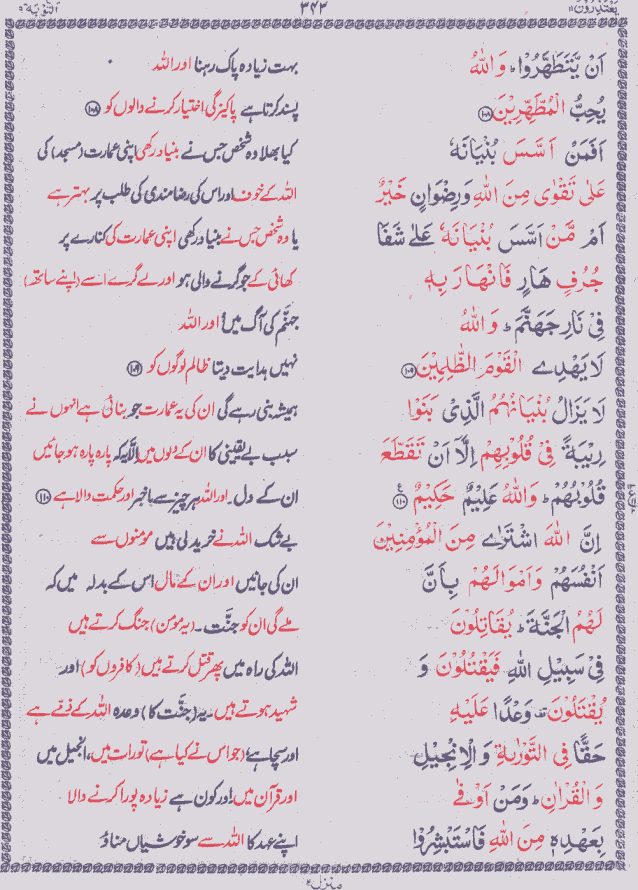 یَعْتَذِرُوْنَ ۱۱ ۳۴۳ اَلتَّوْبَة ۹
اَنْ یَّتَطَهَّرُوْا ؕ وَاللّٰهُ بہت زیادہ پاک رہنا اور اللہ
یُحِبُّ الْمُطَّهِّرِیْنَ ۱۰۸ پسند کرتا ہے پاکیزگی اختیار کرنے والوں کو ۱۰۸
اَفَمَنْ اَسَّسَ بُنْیَانَهٗ کیا بھلا وہ شخص جس نے بنیاد رکھی اپنی عمارت (مسجد) کی
عَلٰی تَقْوٰی مِنَ اللّٰهِ وَرِضْوَانٍ خَیْرٌ اللہ کے خوف اور اس کی رضامندی کی طلب پر بہتر ہے
اَمْ مَّنْ اَسَّسَ بُنْیَانَهٗ عَلٰی شَفَا یا وہ شخص جس نے بنیاد رکھی اپنی عمارت کی کنارے پر
جُرُفٍ هَارٍ فَانْهَارَ بِهٖ کھائی کے جو گرنے والی ہو اور لے گرے اسے (اپنے ساتھ)
فِیْ نَارِ جَهَنَّمَ ؕ وَاللّٰهُ جہنّم کی آگ میں؟ اور اللہ
لَا یَهْدِی الْقَوْمَ الظّٰلِمِیْنَ ۱۰۹ نہیں ہدایت دیتا ظالم لوگوں کو ۱۰۹
لَا یَزَالُ بُنْیَانُهُمُ الَّذِیْ بَنَوْا ہمیشہ بنی رہے گی ان کی یہ عمارت جو بنائی ہے انہوں نے
رِیْبَةً فِیْ قُلُوْبِهِمْ اِلَّاۤ اَنْ تَقَطَّعَ سبب بے یقینی کا ان کے دلوں میں اِلّا یہ کہ پارہ پارہ ہو جائیں
قُلُوْبُهُمْ ؕ وَاللّٰهُ عَلِیْمٌ حَكِیْمٌ ۱۱۰ ان کے دل۔ اور اللہ ہر چیز سے باخبر اور حکمت والا ہے ۱۱۰
اِنَّ اللّٰهَ اشْتَرٰی مِنَ الْمُؤْمِنِیْنَ بے شک اللہ نے خرید لی ہیں مومنوں سے
اَنْفُسَهُمْ وَاَمْوَالَهُمْ بِاَنَّ ان کی جانیں اور ان کے مال اس کے بدلہ میں کہ
لَهُمُ الْجَنَّةَ ؕ یُقَاتِلُوْنَ ملے گی ان کو جنّت۔ (یہ مومن) جنگ کرتے ہیں
فِیْ سَبِیْلِ اللّٰهِ فَیَقْتُلُوْنَ وَ اللہ کی راہ میں پھر قتل کرتے ہیں (کافروں کو) اور
یُقْتَلُوْنَ وَعْدًا عَلَیْهِ شہید ہوتے ہیں۔ یہ (جنّت کا) وعدہ اللہ کے ذمّے ہے
حَقًّا فِی التَّوْرٰىةِ وَالْاِنْجِیْلِ اور سچا ہے (جو اس نے کیا ہے) تورات میں، انجیل میں
وَالْقُرْاٰنِ ؕ وَمَنْ اَوْفٰی اور قرآن میں! اور کون ہے زیادہ پورا کرنے والا
بِعَهْدِهٖ مِنَ اللّٰهِ فَاسْتَبْشِرُوْا اپنے عہد کا اللہ سے سو خوشیاں مناؤ
منزل ۲